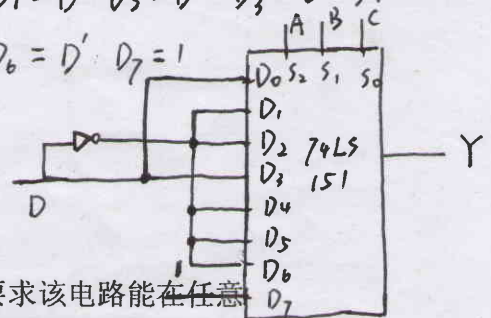 D₆ = D' D₇ = 1
A B C
D₀ S₂ S₁ S₀
D₁
D₂ 74LS
D₃ 151
D₄
D₅
D₆
D₇
Y
D
1
要求该电路能在任意